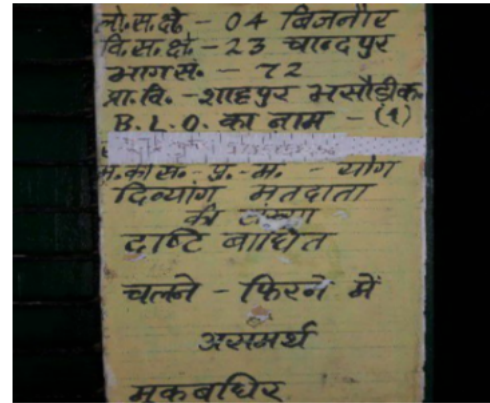 लो.स.क्षे. - 04 बिजनौर
वि.स.क्षे. - 23 चान्दपुर
भाग सं. - 72
प्रा.वि. - शाहपुर भसौडी क.
B.L.O. का नाम - (1)
म.को सं. - पु. - म. - योग
दिव्यांग मतदाता
की संख्या
दृष्टि बाधित
चलने - फिरने में
असमर्थ
मूकबधिर